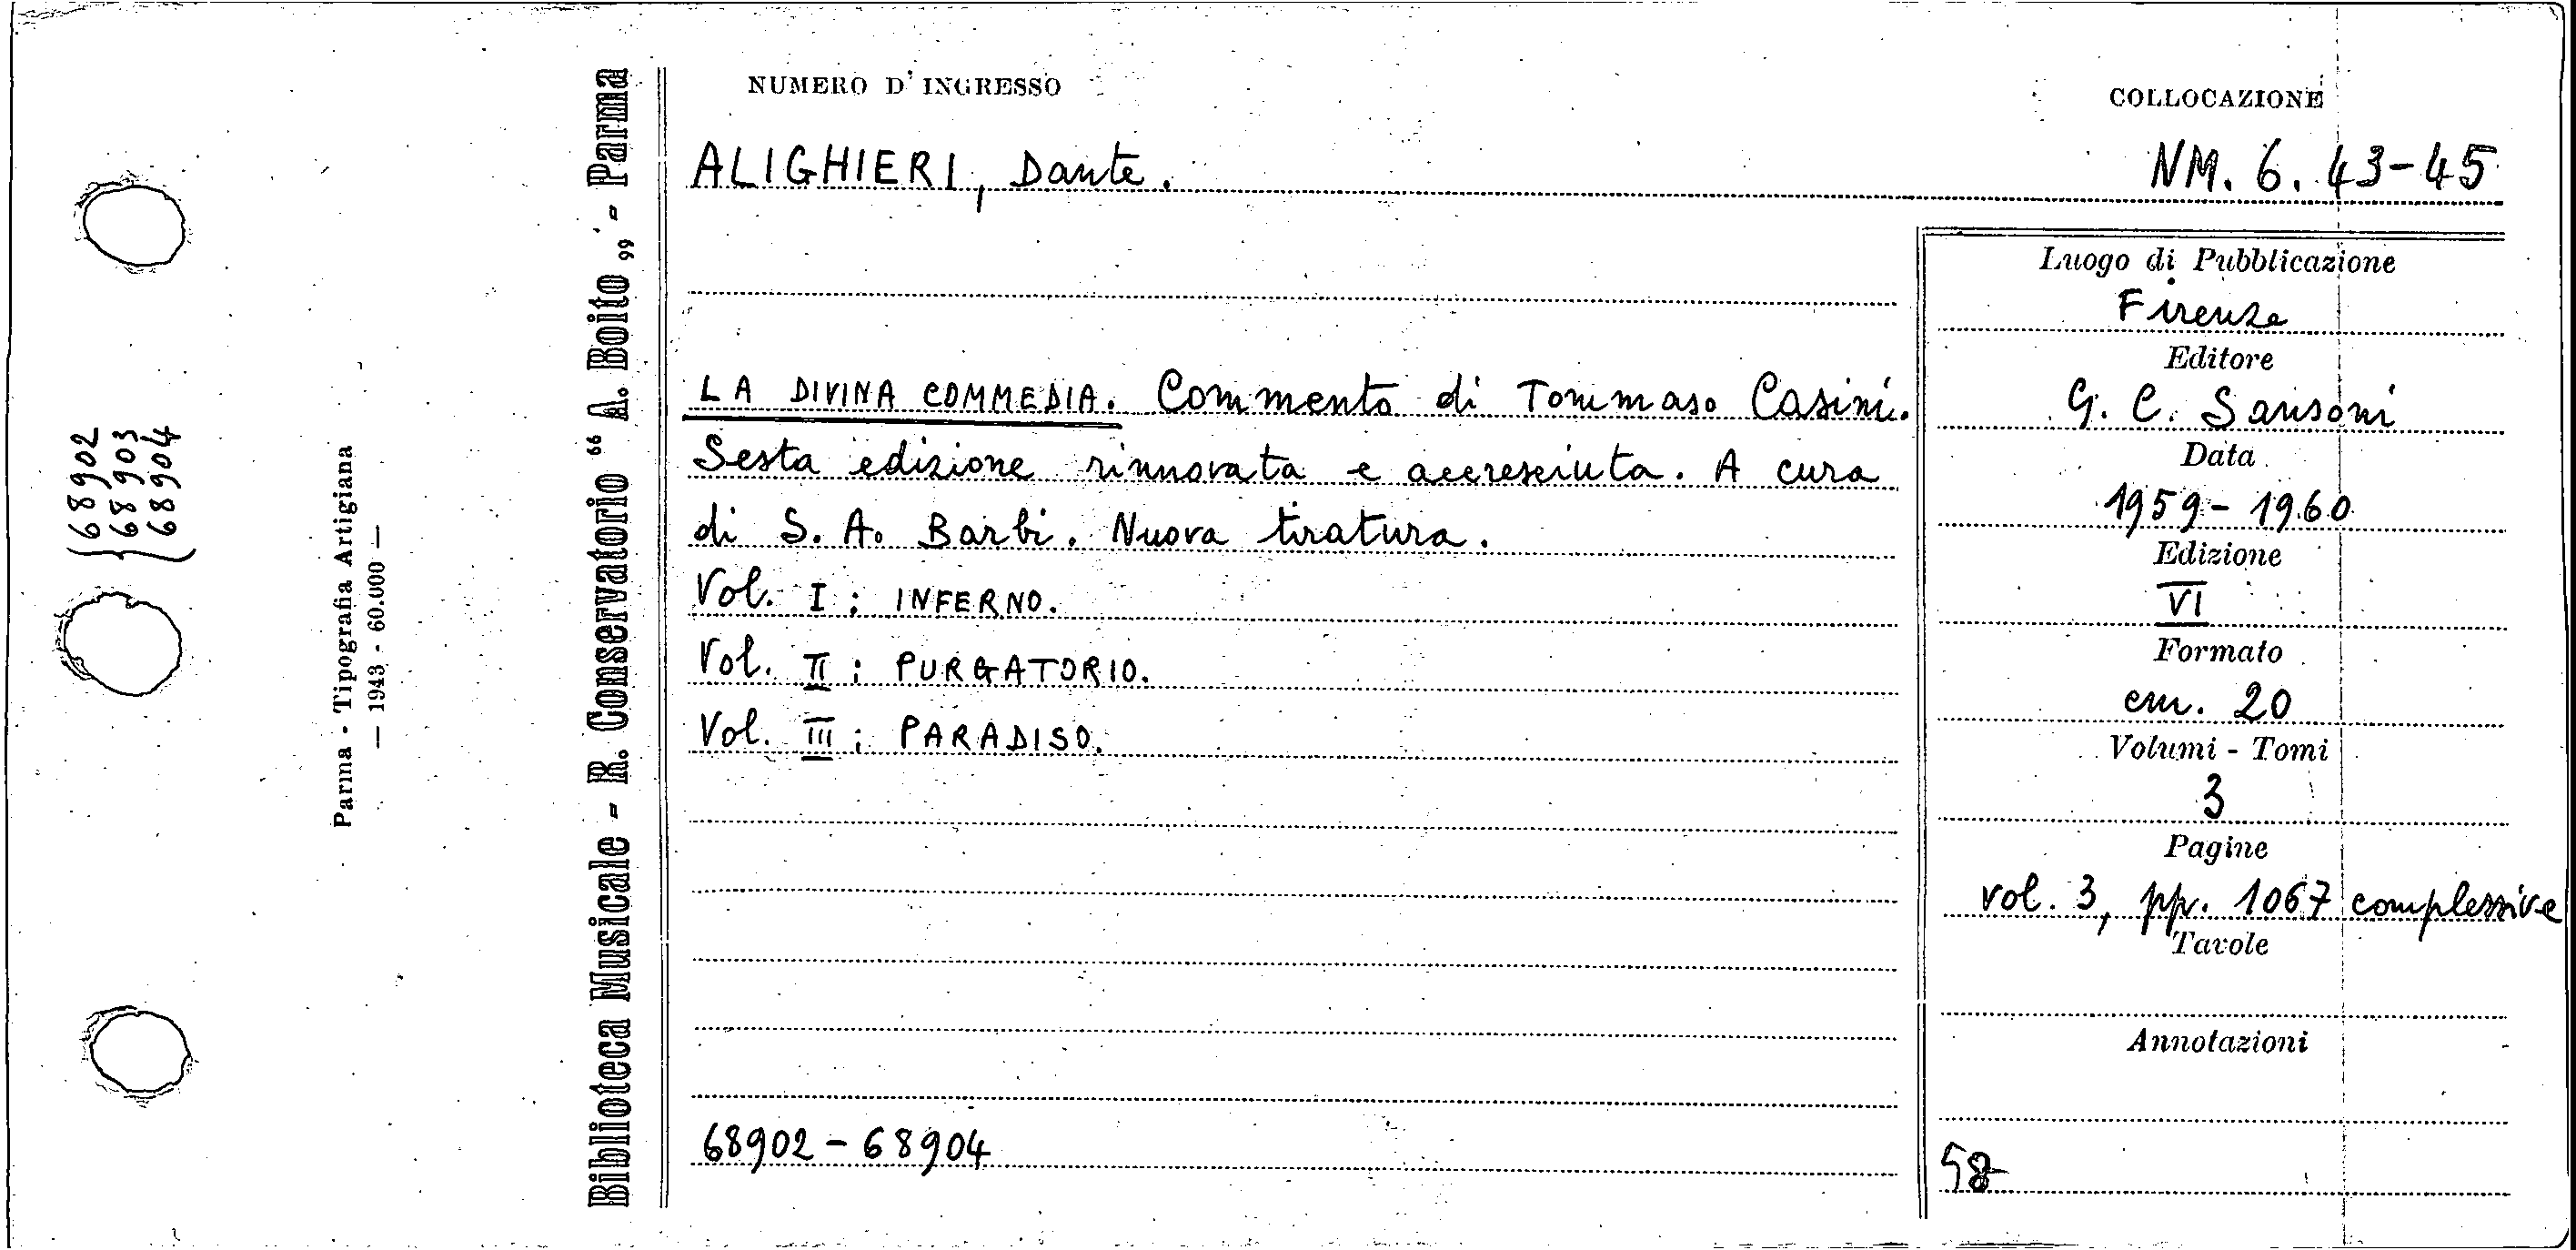 NUMERO D'INGRESSO
COLLOCAZIONE
ALIGHIERI, Dante.
NM. 6. 43-45
LA DIVINA COMMEDIA. Commento di Tommaso Casini.
Sesta edizione rinnovata e accresciuta. A cura
di S. A. Barbi. Nuova tiratura.
Vol. I: INFERNO.
Vol. II: PURGATORIO.
Vol. III: PARADISO.
68902-68904
Luogo di Pubblicazione
Firenze
Editore
G. C. Sansoni
Data
1959-1960
Edizione
VI
Formato
cm. 20
Volumi - Tomi
3
Pagine
vol. 3, pp. 1067 complessive
Tavole
Annotazioni
58
Biblioteca Musicale - R. Conservatorio “ A. Boito „ - Parma
Parma - Tipografia Artigiana
— 1943 - 60.000 —
68902
68903
68904